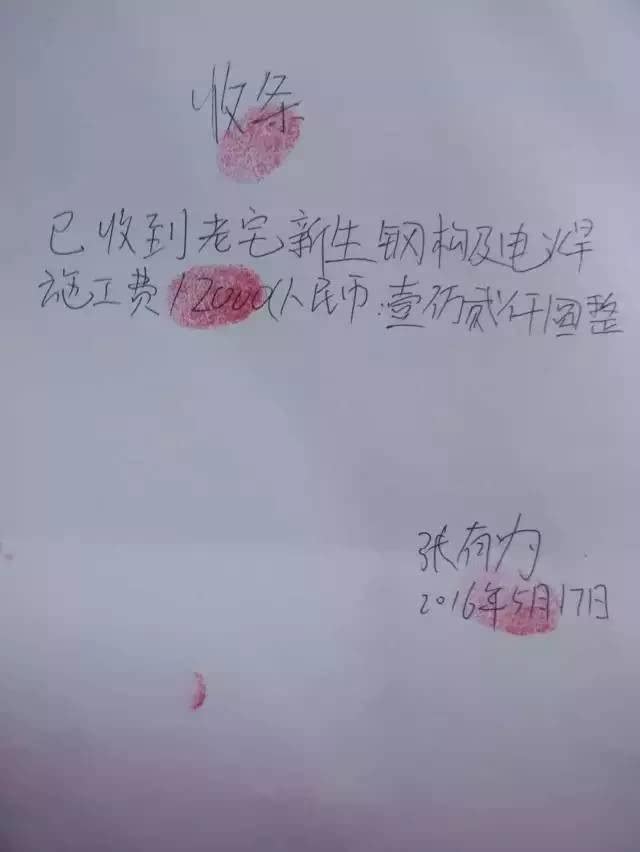 收条
已收到老宅新生钢构及电焊
施工费12000人民币:壹仟贰仟圆整
张有为
2016年5月17日